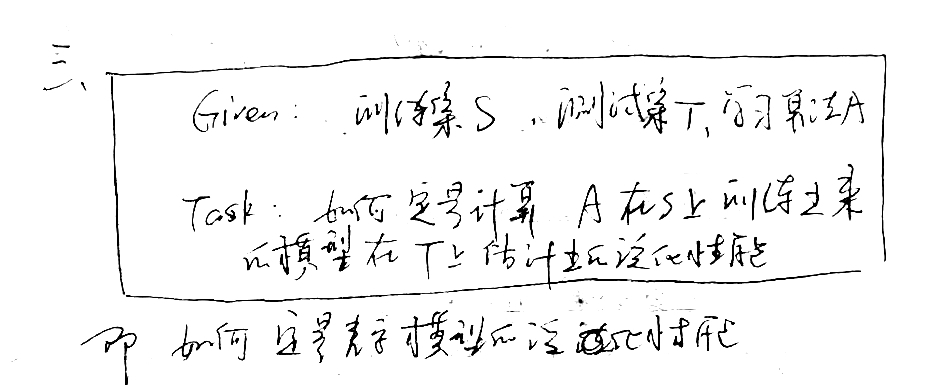 三、
Given: 训练集S, 测试集T, 学习算法A
Task: 如何定量计算 A在S上训练出来
的模型在T上估计出的泛化性能
即 如何定量表示模型的泛化性能